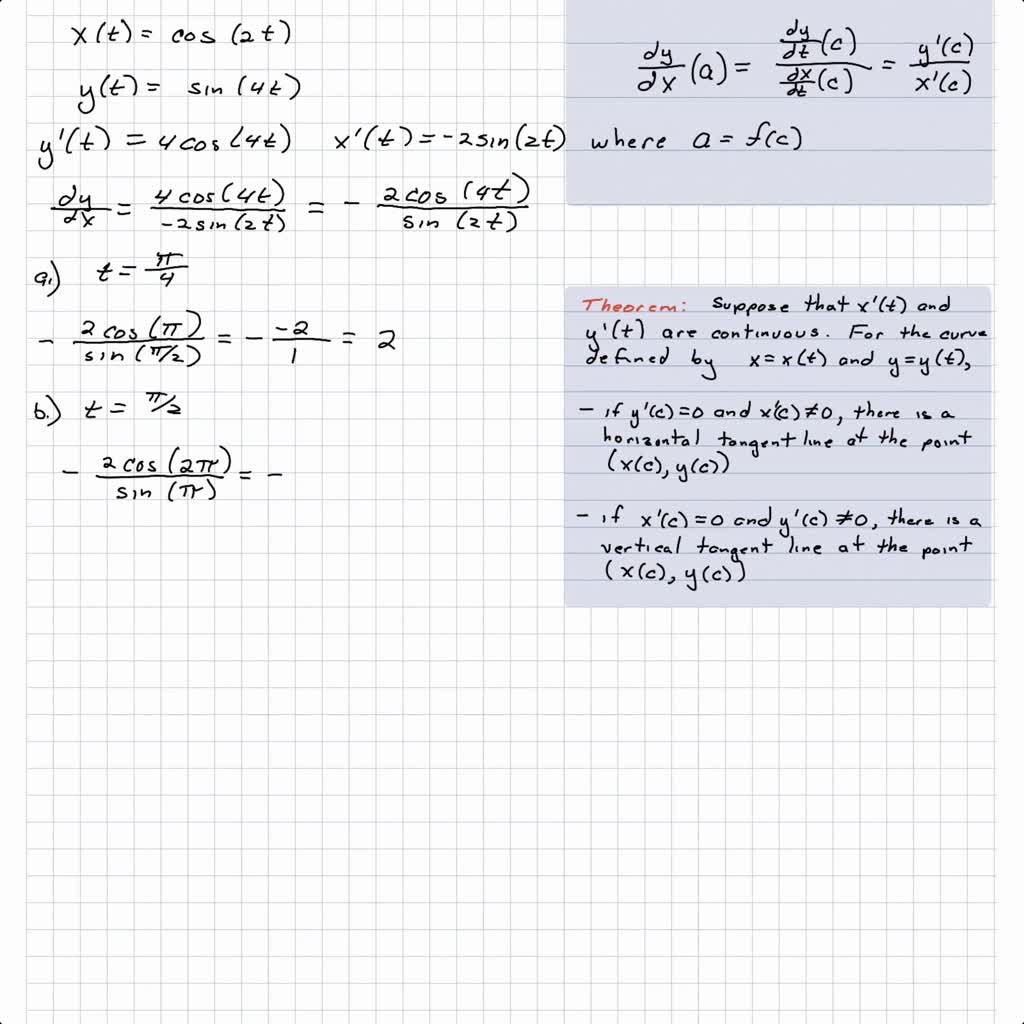 x(t) = cos(2t)
y(t) = sin(4t)
y'(t) = 4cos(4t)    x'(t) = -2sin(2t)
dy/dx = 4cos(4t)/-2sin(2t) = - 2cos(4t)/sin(2t)
a.) t = π/4
- 2cos(π)/sin(π/2) = - -2/1 = 2
b.) t = π/2
- 2cos(2π)/sin(π) = -
dy/dx (a) = dy/dt (c) / dx/dt (c) = y'(c)/x'(c)
where a = f(c)
Theorem: Suppose that x'(t) and
y'(t) are continuous. For the curve
defined by x = x(t) and y = y(t),
- if y'(c) = 0 and x'(c) ≠ 0, there is a
horizontal tangent line at the point
(x(c), y(c))
- if x'(c) = 0 and y'(c) ≠ 0, there is a
vertical tangent line at the point
(x(c), y(c))